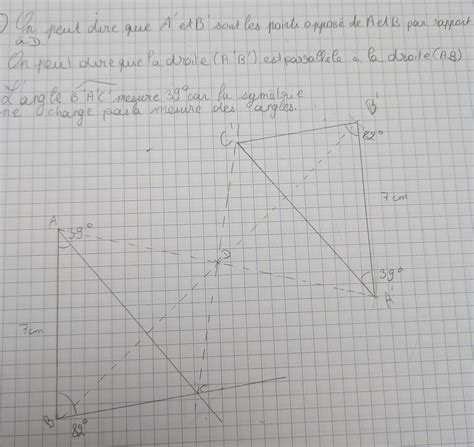 ) On peut dire que A' et B' sont les points opposé de A et B par rapport
à D
On peut dire que la droite (A'B') est parallèle à la droite (AB)
L'angle B'A'C' mesure 39° car la symétrie
ne change pas la mesure des angles.
B'
C'
82°
7cm
A
39°
D
39°
A'
7cm
C
B
82°